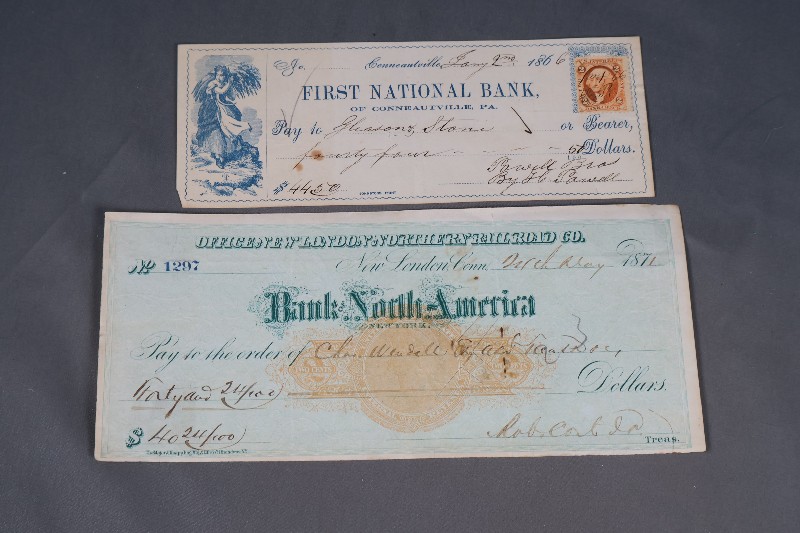 No. Conneautville, Jany 2nd 1866
FIRST NATIONAL BANK,
OF CONNEAUTVILLE, PA.
Pay to Gleason & Stone or Bearer,
fourty four 50/100 Dollars.
Powell Bros
$ 44 50 By Powell
OFFICE NEW LONDON NORTHERN RAILROAD CO.
No 1297 New London, Conn. May 187
Bank of North America
NEW YORK.
Pay to the order of Chas. Wendell
Forty and 24/100 Dollars.
$ 40 24/100 Rob. Coit Jr
Treas.